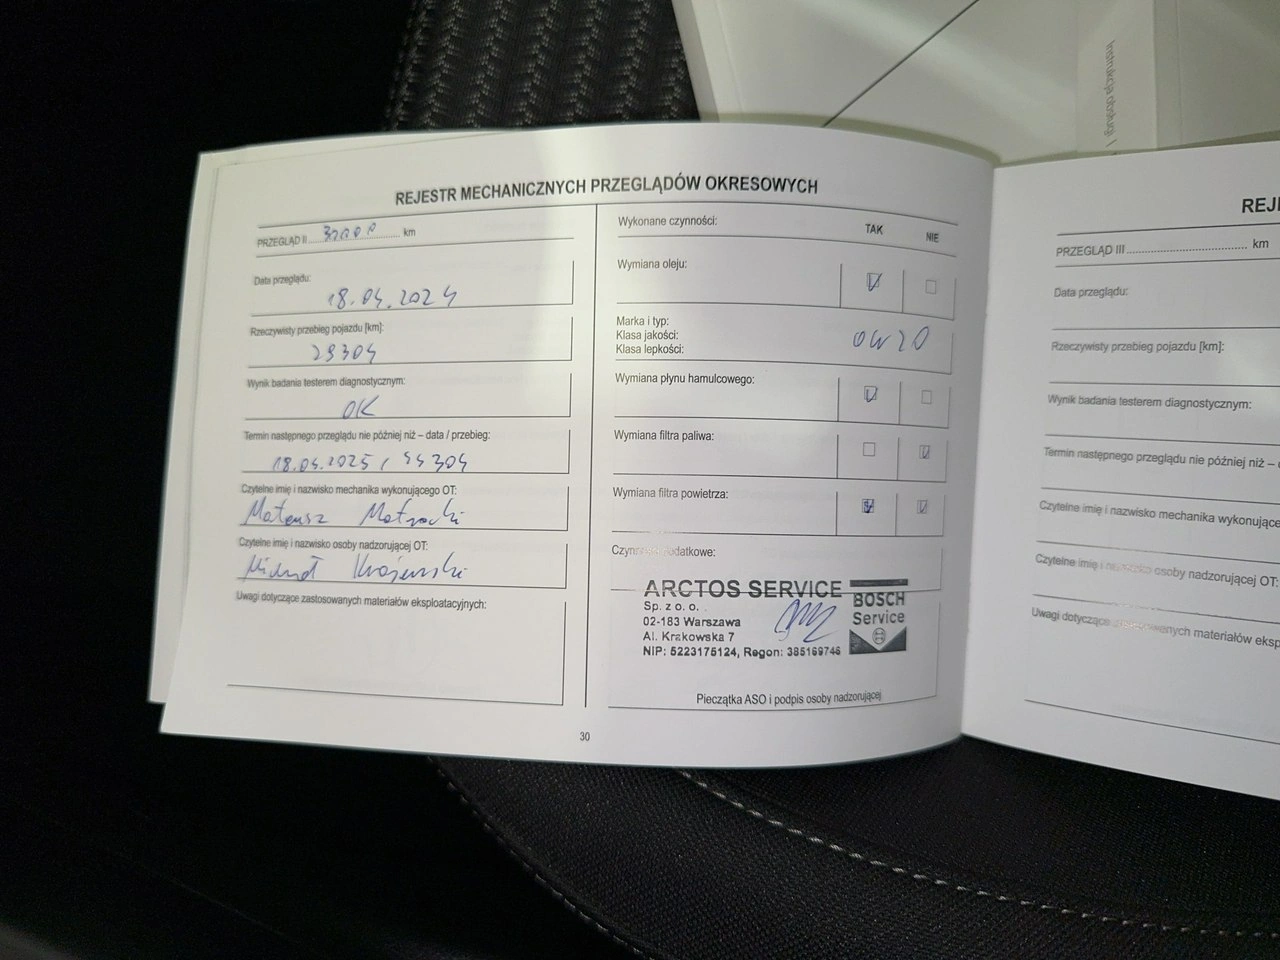 Instrukcja obsługi
REJESTR MECHANICZNYCH PRZEGLĄDÓW OKRESOWYCH
PRZEGLĄD II 30000 km
Data przeglądu:
18.04.2024
Rzeczywisty przebieg pojazdu [km]:
29304
Wynik badania testerem diagnostycznym:
OK
Termin następnego przeglądu nie później niż – data / przebieg:
18.04.2025 / 44304
Czytelne imię i nazwisko mechanika wykonującego OT:
Mateusz
Czytelne imię i nazwisko osoby nadzorującej OT:
Michał Krajewski
Uwagi dotyczące zastosowanych materiałów eksploatacyjnych:
Wykonane czynności: TAK NIE
Wymiana oleju:
Marka i typ:
Klasa jakości:
Klasa lepkości:
0W20
Wymiana płynu hamulcowego:
Wymiana filtra paliwa:
Wymiana filtra powietrza:
Czynności dodatkowe:
ARCTOS SERVICE
Sp. z o. o.
02-183 Warszawa
Al. Krakowska 7
NIP: 5223175124, Regon: 385169746
BOSCH
Service
Pieczątka ASO i podpis osoby nadzorującej
30
REJ
PRZEGLĄD III km
Data przeglądu:
Rzeczywisty przebieg pojazdu [km]:
Wynik badania testerem diagnostycznym:
Termin następnego przeglądu nie później niż –
Czytelne imię i nazwisko mechanika wykonujące
Czytelne imię i nazwisko osoby nadzorującej OT:
Uwagi dotyczące zastosowanych materiałów eksp